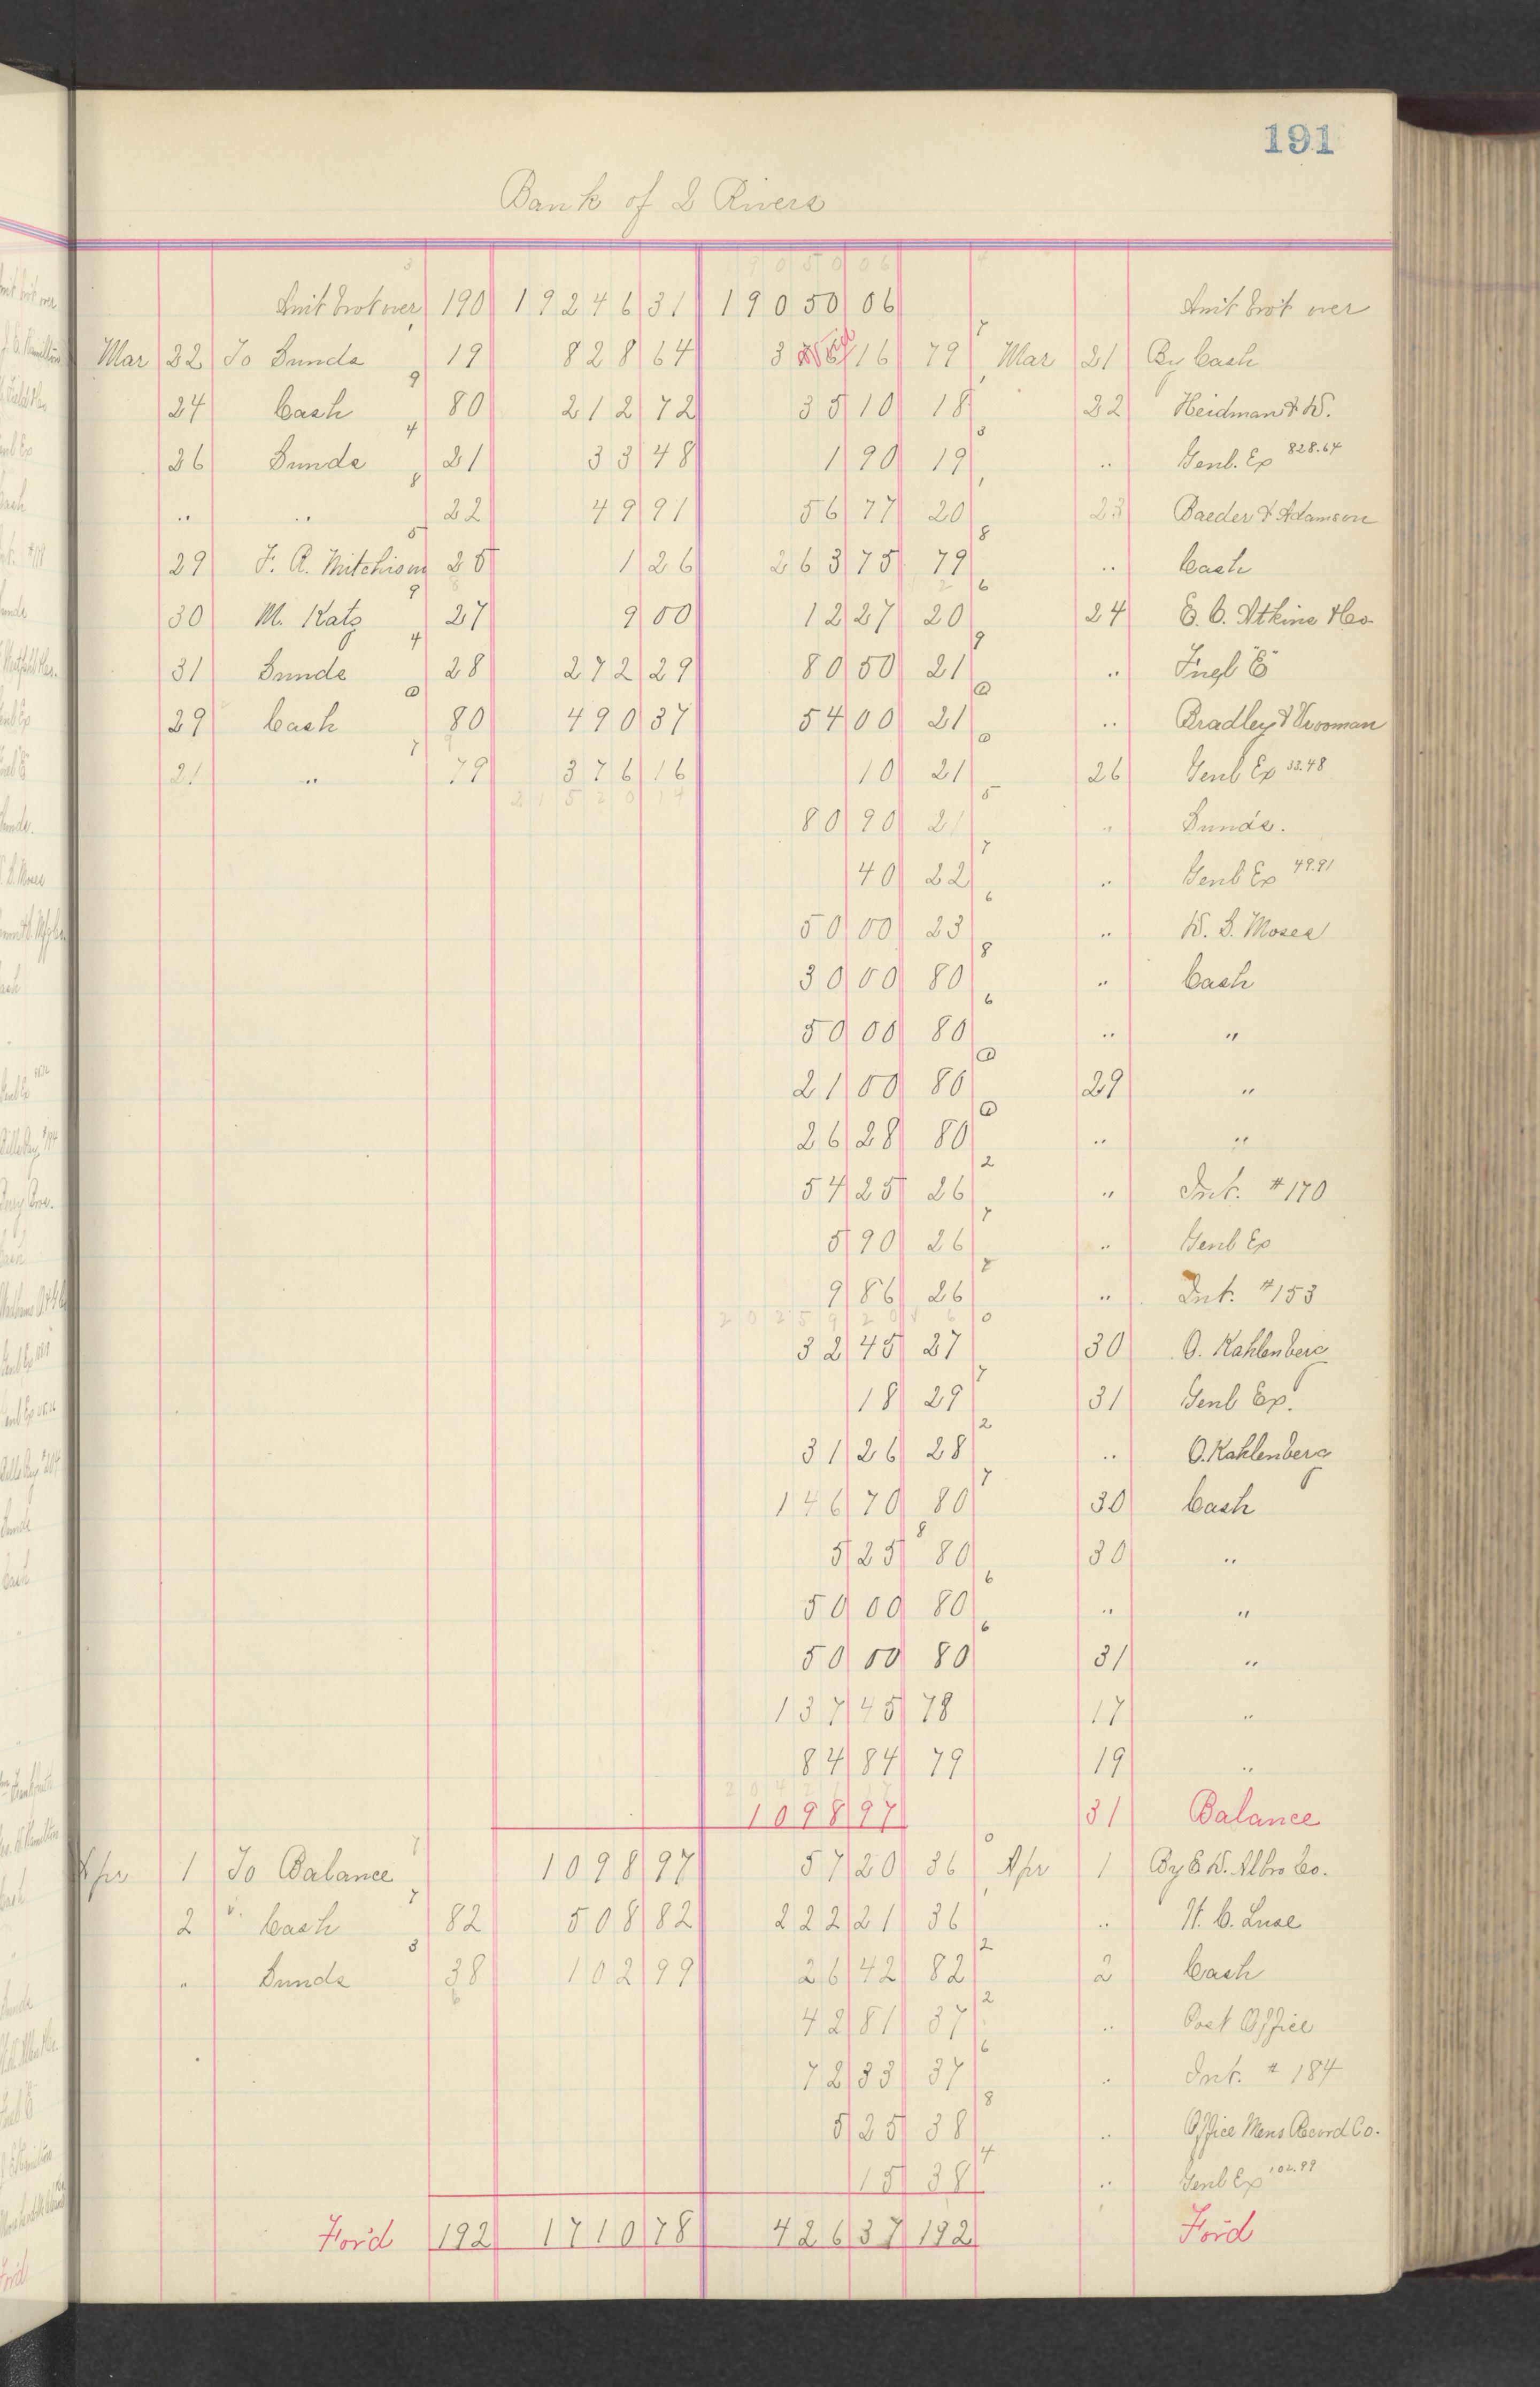 191
Bank of 2 Rivers
Amt brot over 190 19246 31 19050 06 Amt brot over
Mar 22 To Sunds 19 828 64 376 16 79 Mar 21 By Cash
24 Cash 80 212 72 35 10 18 22 Heidman & W.
26 Sunds 21 33 48 1 90 19 .. Genl. Ex 828.64
.. .. 22 49 91 56 77 20 23 Baeder & Adamson
29 F. R. Mitchison 25 1 26 263 75 79 .. Cash
30 M. Katz 27 9 00 12 27 20 24 E. C. Atkins & Co
31 Sunds 28 272 29 80 50 21 .. Fingl "E"
29 Cash 80 490 37 54 00 21 .. Bradley & Vrooman
21 .. 79 376 16 10 21 26 Genl Ex 33.48
21520 14
80 90 21 .. Sunds.
40 22 .. Genl Ex 49.91
50 00 23 .. W. S. Moses
30 00 80 .. Cash
50 00 80 .. "
21 00 80 29 "
26 28 80 .. "
54 25 26 .. Int. #170
5 90 26 .. Genl Ex
9 86 26 .. Int. #153
20259 20
32 45 27 30 O. Kahlenberg
18 29 31 Genl Ex.
31 26 28 .. O. Kahlenberg
146 70 80 30 Cash
5 25 80 30 "
50 00 80 .. "
50 00 80 31 "
137 45 78 17 "
84 84 79 19 "
1098 97 31 Balance
Apr 1 To Balance 1098 97 57 20 36 Apr 1 By E. W. Albro Co.
2 " Cash 82 508 82 222 21 36 .. H. C. Luse
" Sunds 38 102 99 26 42 82 2 Cash
42 81 37 .. Post Office
72 33 37 .. Int. # 184
5 25 38 .. Office Mens Record Co.
15 38 .. Genl Ex 102.99
For'd 192 1710 78 426 37 192 For'd